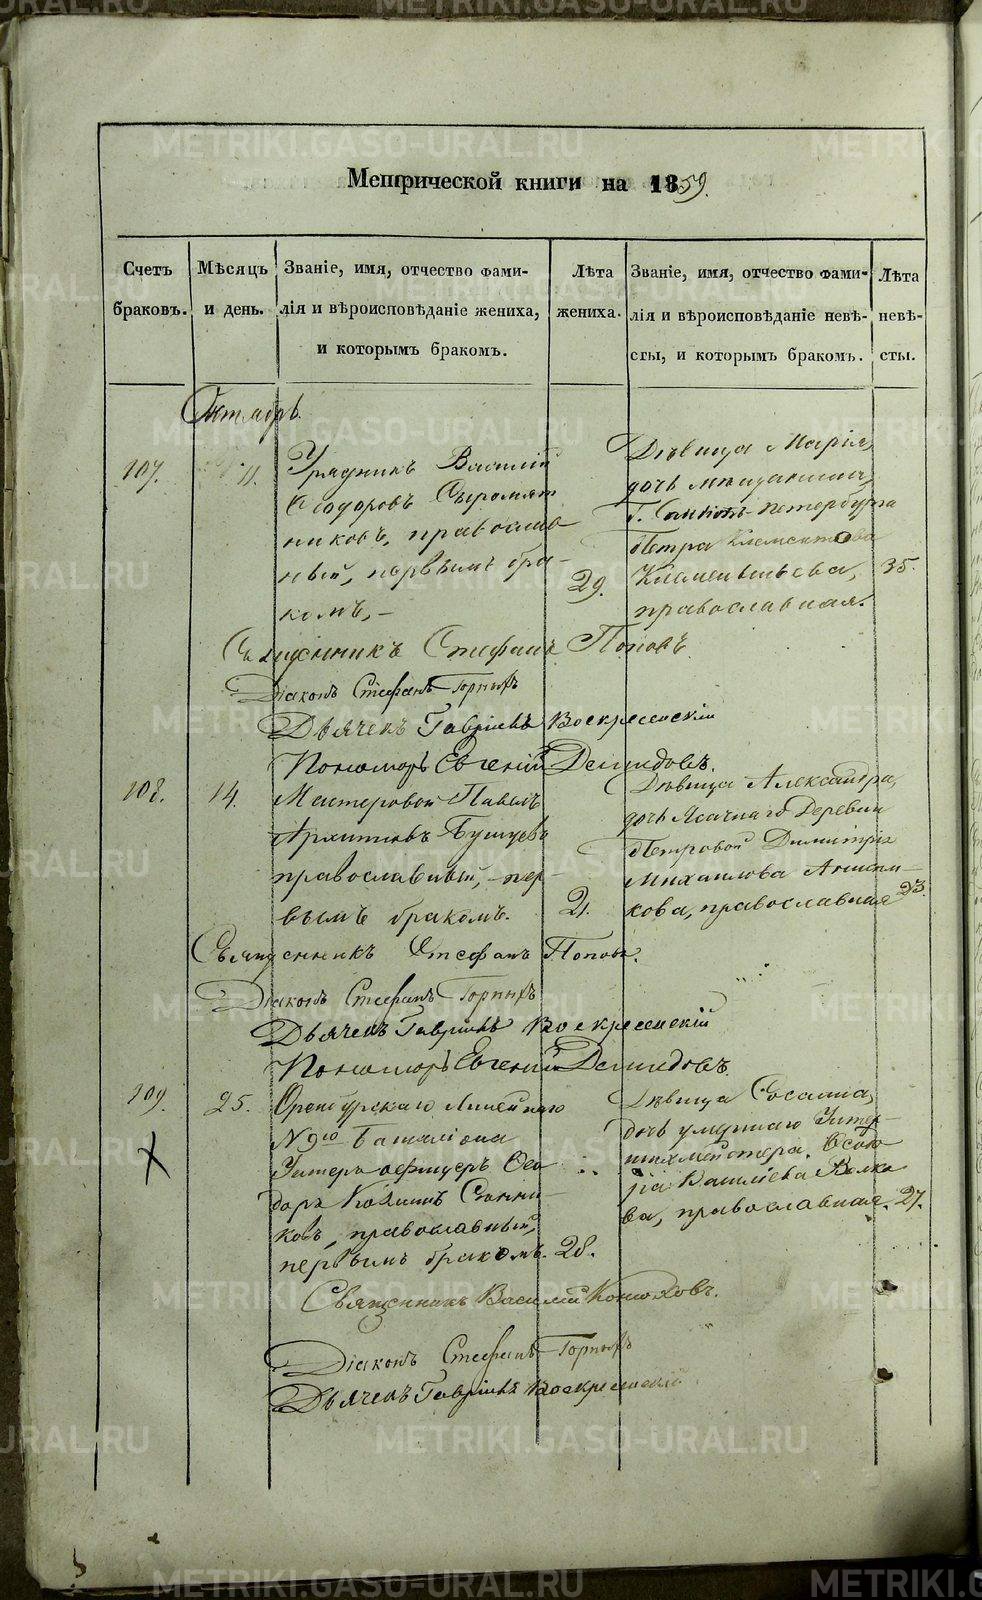 METRIKI.GASO-URAL.RU
Метрической книги на 1859.
Счетъ браковъ.
Мѣсяцъ и день.
Званіе, имя, отчество фами-
лія и вѣроисповѣданіе жениха,
и которымъ бракомъ.
Лѣта жениха.
Званіе, имя, отчество фами-
лія и вѣроисповѣданіе невѣ-
сты, и которымъ бракомъ.
Лѣта невѣ-
сты.
Октябрь.
107.
11.
Урядникъ Василій
Ѳеодоровъ Сыромят
никовъ, православ
ный, первымъ бра-
комъ,-
29.
Дѣвица Марія,
дочь мѣщанина
г. Санктъ-Петербурга
Петра Клементьева
Клементьева,
православная.
35.
Священникъ Стефанъ Поповъ
Діаконъ Стефанъ Горныхъ
Дьячекъ Гавріилъ Воскресенскій
Пономарь Евгеній Демидовъ.
108.
14.
Мастеровой Павелъ
Архиповъ Бушуевъ
православный, пер-
вымъ бракомъ.
21.
Дѣвица Александра,
дочь Ясачнаго Деревни
Петровой Димитрія
Михайлова Аники-
кова, православная
23.
Священникъ Стефанъ Поповъ.
Діаконъ Стефанъ Горныхъ
Дьячекъ Гавріилъ Воскресенскій
Пономарь Евгеній Демидовъ.
109.
25.
Оренбурскаго Линейнаго
№ 9го Баталіона
Унтеръ офицеръ Ѳео
доръ Козминъ Санни-
ковъ, православный,
первымъ бракомъ.
28.
Дѣвица
дочь умершаго Унтер-
шихмейстера,
Василіева Волко
ва, православная.
27.
Священникъ Василій Конюховъ.
Діаконъ Стефанъ Горныхъ
Дьячекъ Гавріилъ Воскресенскій